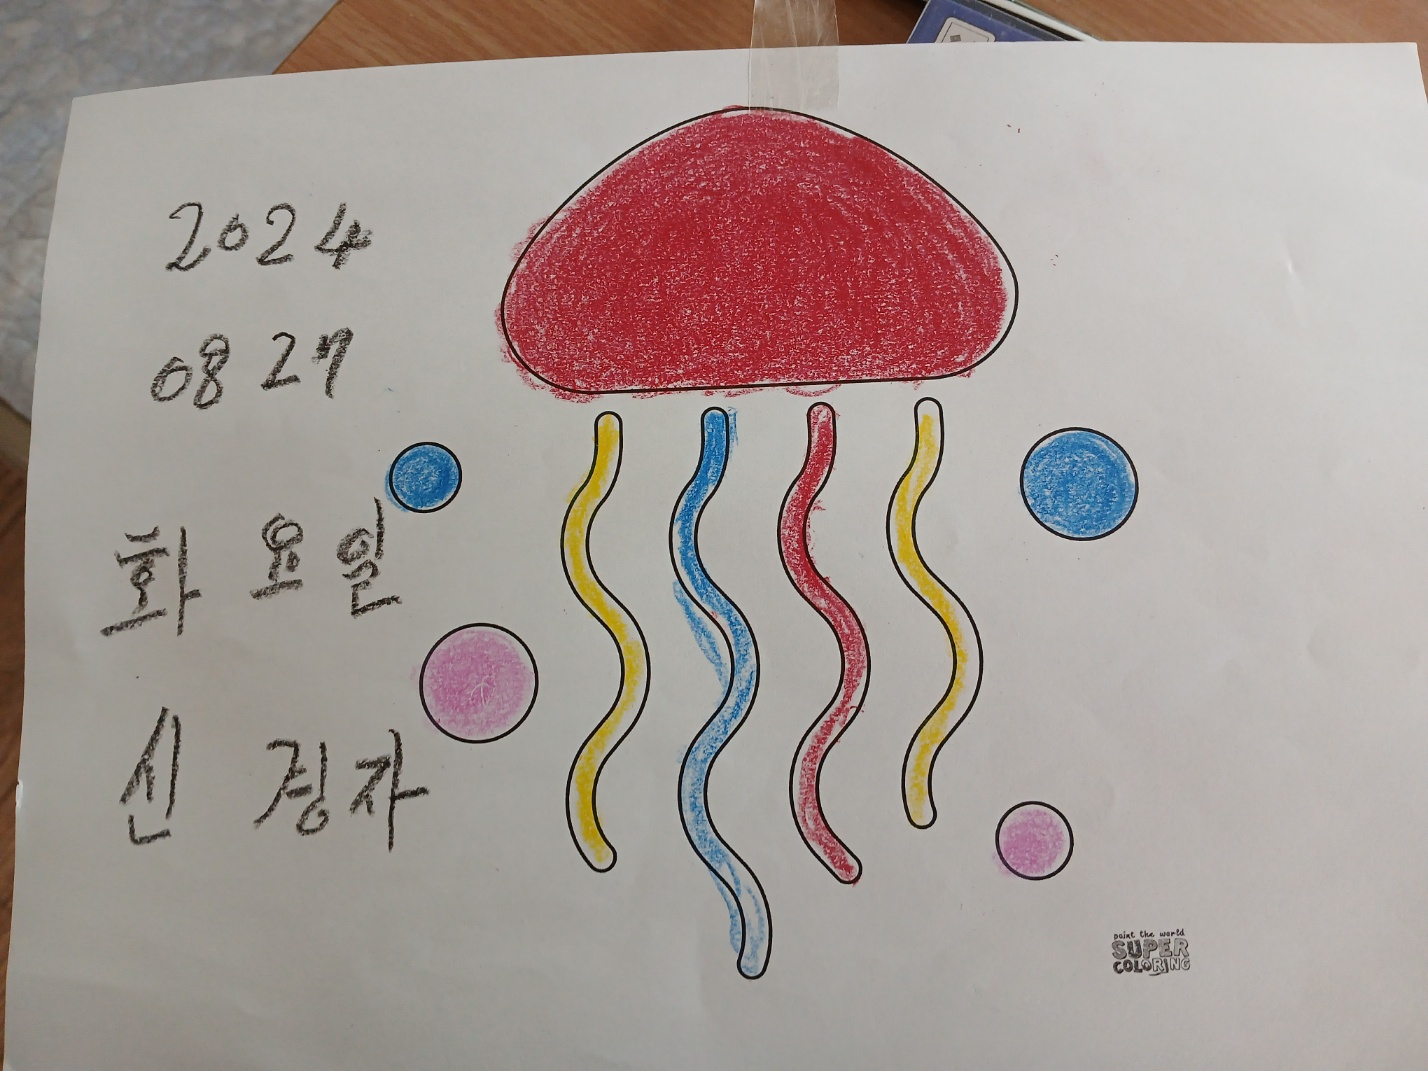 2024
08 27
화 요 일
신 경 자
paint the world
SUPER
COLORING